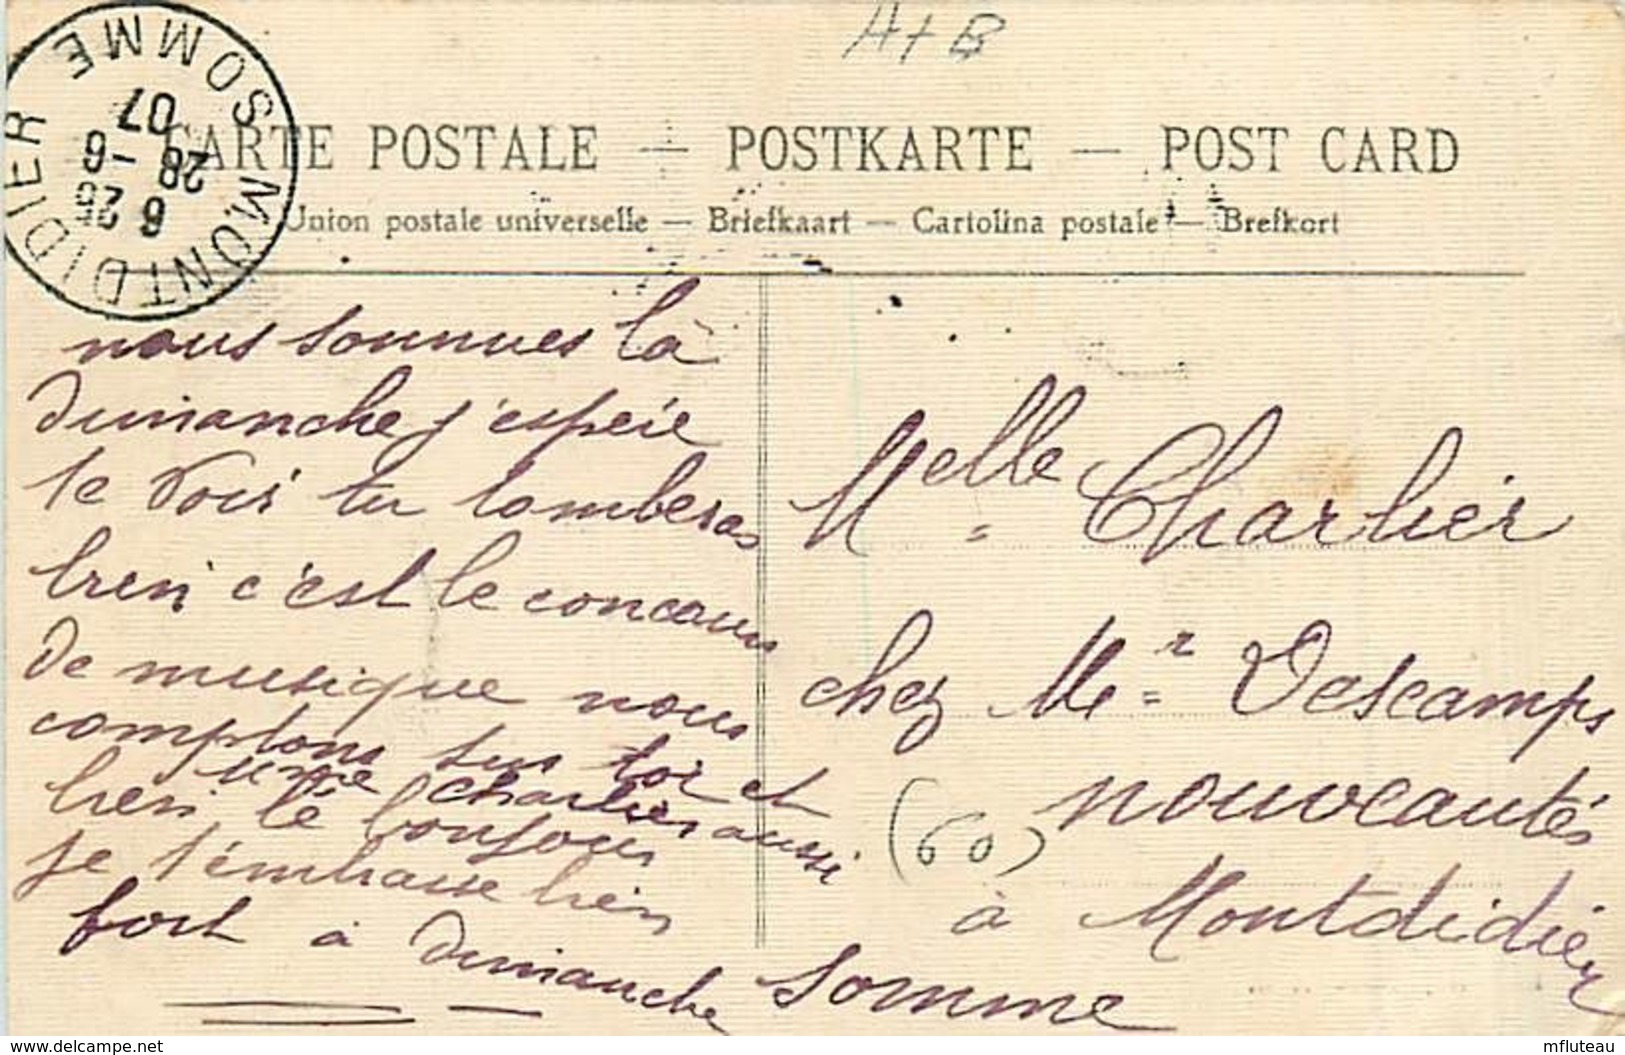 A+B
CARTE POSTALE — POSTKARTE — POST CARD
Union postale universelle — Briefkaart — Cartolina postale — Brefkort
MONTDIDIER SOMME
6
28 - 6
07
nous sommes là
dimanche j'espère
te voir tu tomberas
bien c'est le concours
de musique nous
comptons sur toi et
Charlier aussi
bien le bonjour
je t'embrasse bien
fort à dimanche
Melle Charlier
chez Mr Descamps
nouveautés
(60)
à Montdidier
Somme
www.delcampe.net
mfluteau